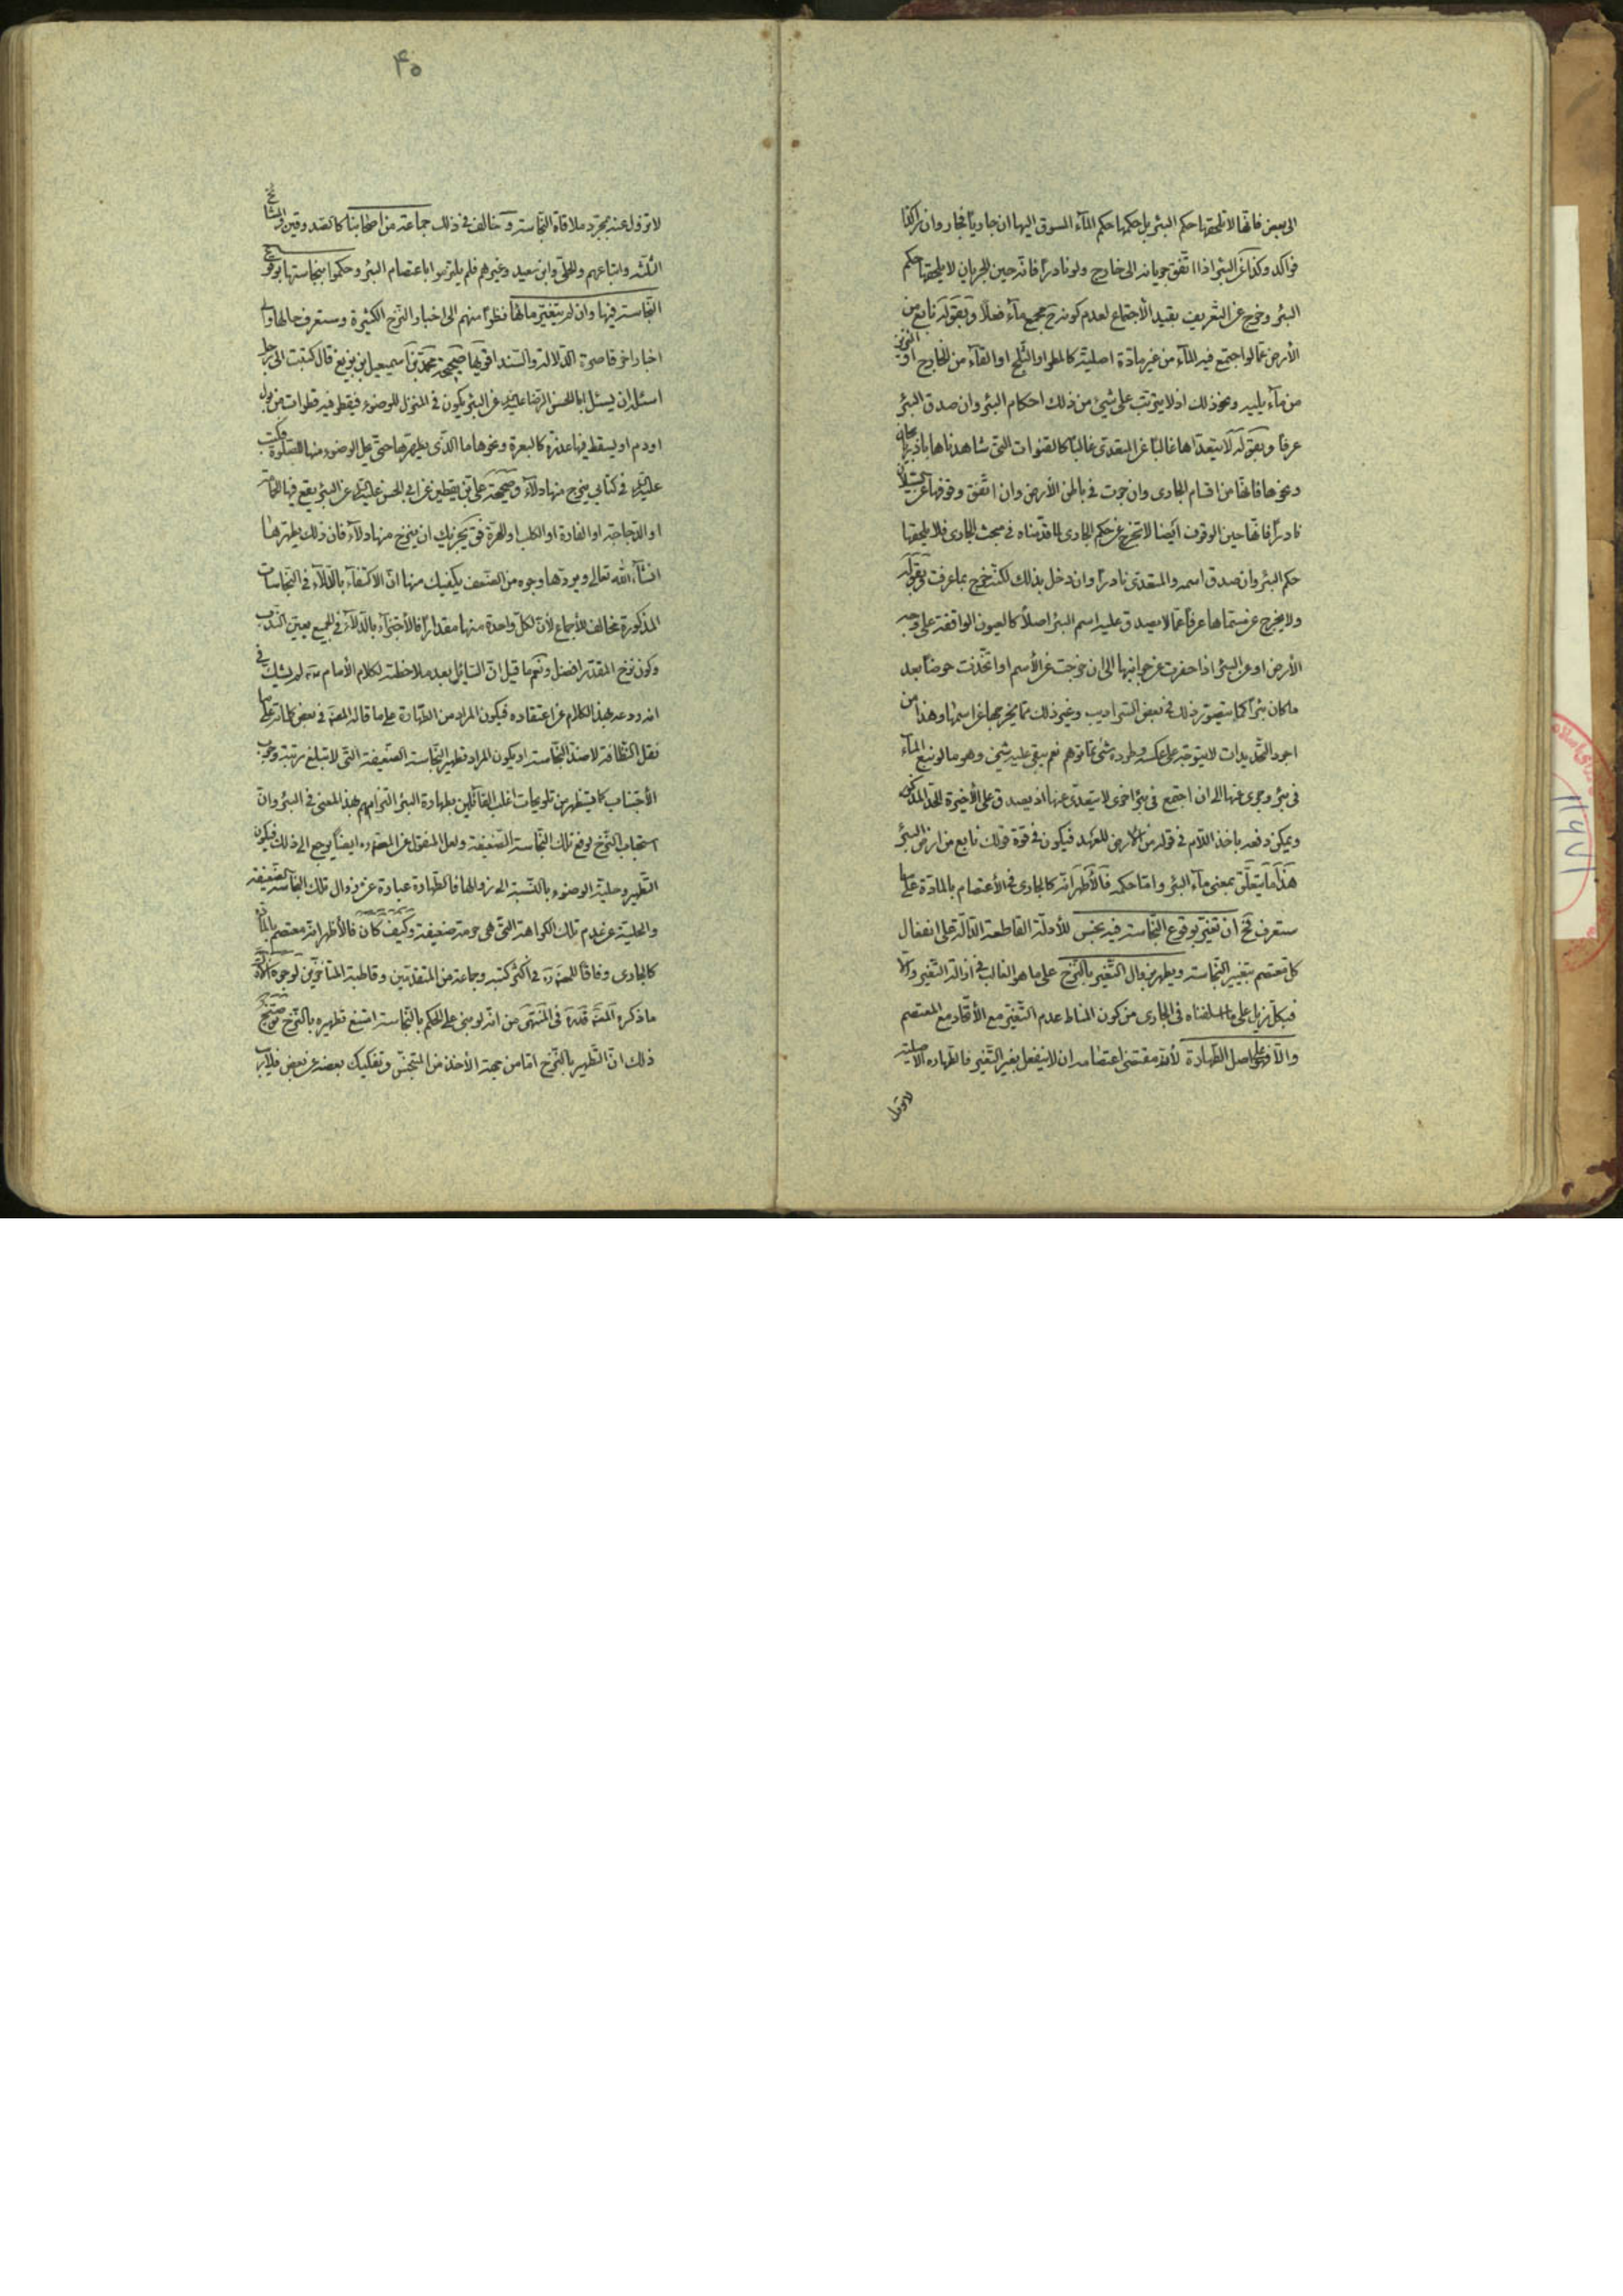 الى بعض فانها لا تلحقها حكم البئر بل حكمها حكم الماء المسوق اليها ان جاريا فجار وان راكدا
فراكد وكذا عن البئر اذا اتفق جريانه الى خارج ولو نادرا فانه حين الجريان لا يلحقها حكم
البئر وخرج عن التعريف بقيد الاجتماع لعدم كونه مجمع ماء فعلا وبقوله نابع من
الأرض عما لو اجتمع فيه الماء من غير مادة اصلية كالمطر او الثلج او القاء من الخارج او النزيز
من ماء يليه ونحو ذلك اذ لا يترتب على شيء من ذلك احكام البئر وان صدق البئر
عرفا وبقوله لا يتعداها غالبا عن المتعدى غالبا كالقنوات التى شاهدناها باذربايجان
ونحوها فانها من اقسام الجارى وان جرت في باطن الأرض وان اتفق وقوفها عن السيلان
نادرا فانها حين الوقوف ايضا لا تخرج عن حكم الجارى لما قدمناه في مبحث الجارى فلا يلحقها
حكم البئر وان صدق اسمه والمتعدى نادرا وان دخل بذلك لكنه خرج بما عرفت وبقوله
ولا يخرج عن مسماها عرفا عما لا يصدق عليه اسم البئر اصلا كالعيون الواقفة على وجه
الأرض او عن البئر اذا حفرت عن جوانبها الى ان خرجت عن الأسم او اتخذت حوضا بعد
ما كان بئرا كما يتصور ذلك في بعض السراديب وغير ذلك مما يخرجها عن اسمها وهذا من
اجود التحديدات لا يتوجه على عكسه وطرده شئ مما توهم نعم يبقى عليه شيئ وهو ما لو نبع الماء
فى بئر وجرى عنها الى ان اجتمع فى بئر اخرى لا يتعدى عنها اذ يصدق على الأخيرة الحد المذكور
ويمكن دفعه باخذ اللام في قوله من الأرض للعهد فيكون في قوة قولك نابع من ارض البئر
هذا ما يتعلق بمعنى ماء البئر واما حكمه فالأظهر انه كالجارى في الأعتصام بالمادة على ما
ستعرف فح ان تغير بوقوع النجاسة فيه نجس للأدلة القاطعة الدالة على انفعال
كل معتصم بتغيير النجاسة ويطهر بزوال التغير بالنزح على ما هو الغالب في ازالة التغير والا
فبكل مزيل على ما اسلفناه فى الجارى من كون المناط عدم التغير مع الأتحاد مع المعتصم
والا فهو على اصل الطهارة لأنه مقتضى اعتصامه ان لا ينفعل بغير التغير فالطهارة الأصلية
لا تزول
۴۵
لا تزول عنه بمجرد ملاقاة النجاسة وخالف في ذلك جماعة من اصحابنا كالصدوقين والمشايخ
الثلثة واتباعهم والحلى وابن سعيد وغيرهم فلم يلتزموا باعتصام البئر وحكموا بنجاستها بوقوع
النجاسة فيها وان لم يتغير مائها نظرا منهم الى اخبار النزح الكثيرة وستعرف حالها والى
اخبار اخر قاصرة الدلالة والسند اقويها صحيحة محمد بن اسمعيل ابن بزيع قال كتبت الى رجل
اسئله ان يسئل ابا الحسن الرضا عليه عن البئر يكون في المنزل للوضوء فيقطر فيه قطرات من بول
او دم او يسقط فيها عذرة كالبعرة ونحوها ما الذى يطهرها حتى يحل الوضوء منها للصلوة فكتب
عليه في كتابي ينزح منها دلاء وصحيحة على بن يقطين عن ابي الحسن عليه عن البئر يقع فيها الحمامة
او الدجاجة او الفارة او الكلب او الهرة فق يجزيك ان ينزح منها دلاء فان ذلك يطهرها
انشاء الله تعالى ويردها وجوه من الضعف يكفيك منها ان الاكتفاء بالدلاء في النجاسات
المذكورة مخالف للأجماع لأن لكل واحدة منها مقدارا فالأجتزاء بالدلاء في الجميع يعين الندب
وكون نزح المقدر افضل ونعم ما قيل ان السائل بعد ملاحظة لكلام الأمام لم يشك في
انه ردعه بهذا الكلام عن اعتقاده فيكون المراد من الطهارة على ما قاله المصنف في بعض كلماته على ما
نقل النظافة لا ضد النجاسة او يكون المراد تطهير النجاسة الضعيفة التى لا تبلغ مرتبة وجوب
الأجتناب كما يستظهر من تلويحات اغلب القائلين بطهارة البئر التزامهم بهذا المعنى في البئر وان
استحباب النزح لرفع تلك النجاسة الضعيفة ولعل المنقول عن المصنف ايضا يرجع الى ذلك فيكون
التطهير وحلية الوضوء بالنسبة الى زوالها فالطهارة عبارة عن زوال تلك النجاسة الضعيفة
والحلية عن عدم تلك الكراهة التى هى حرمة ضعيفة وكيف كان فالأظهر انه معتصم بالمادة
كالجارى وفاقا للمصنف في اكثر كتبه وجماعة من المتقدمين وقاطبة المتأخرين لوجوه الأول
ما ذكره المصنف في المنتهى من انه لو بنى على الحكم بالنجاسة امتنع تطهيره بالنزح توضيح
ذلك ان التطهير بالنزح اما من جهة الأخذ من المتنجس وتفكيك بعضه عن بعض فلا ريب